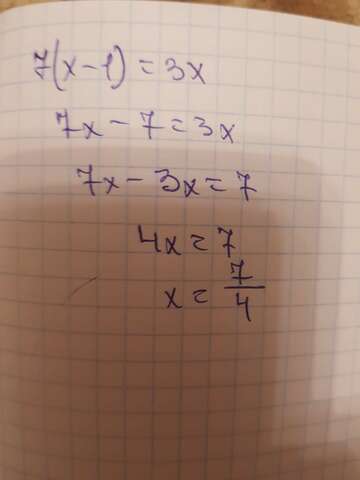 7(x-1)=3x
7x-7=3x
7x-3x=7
4x=7
x=7/4